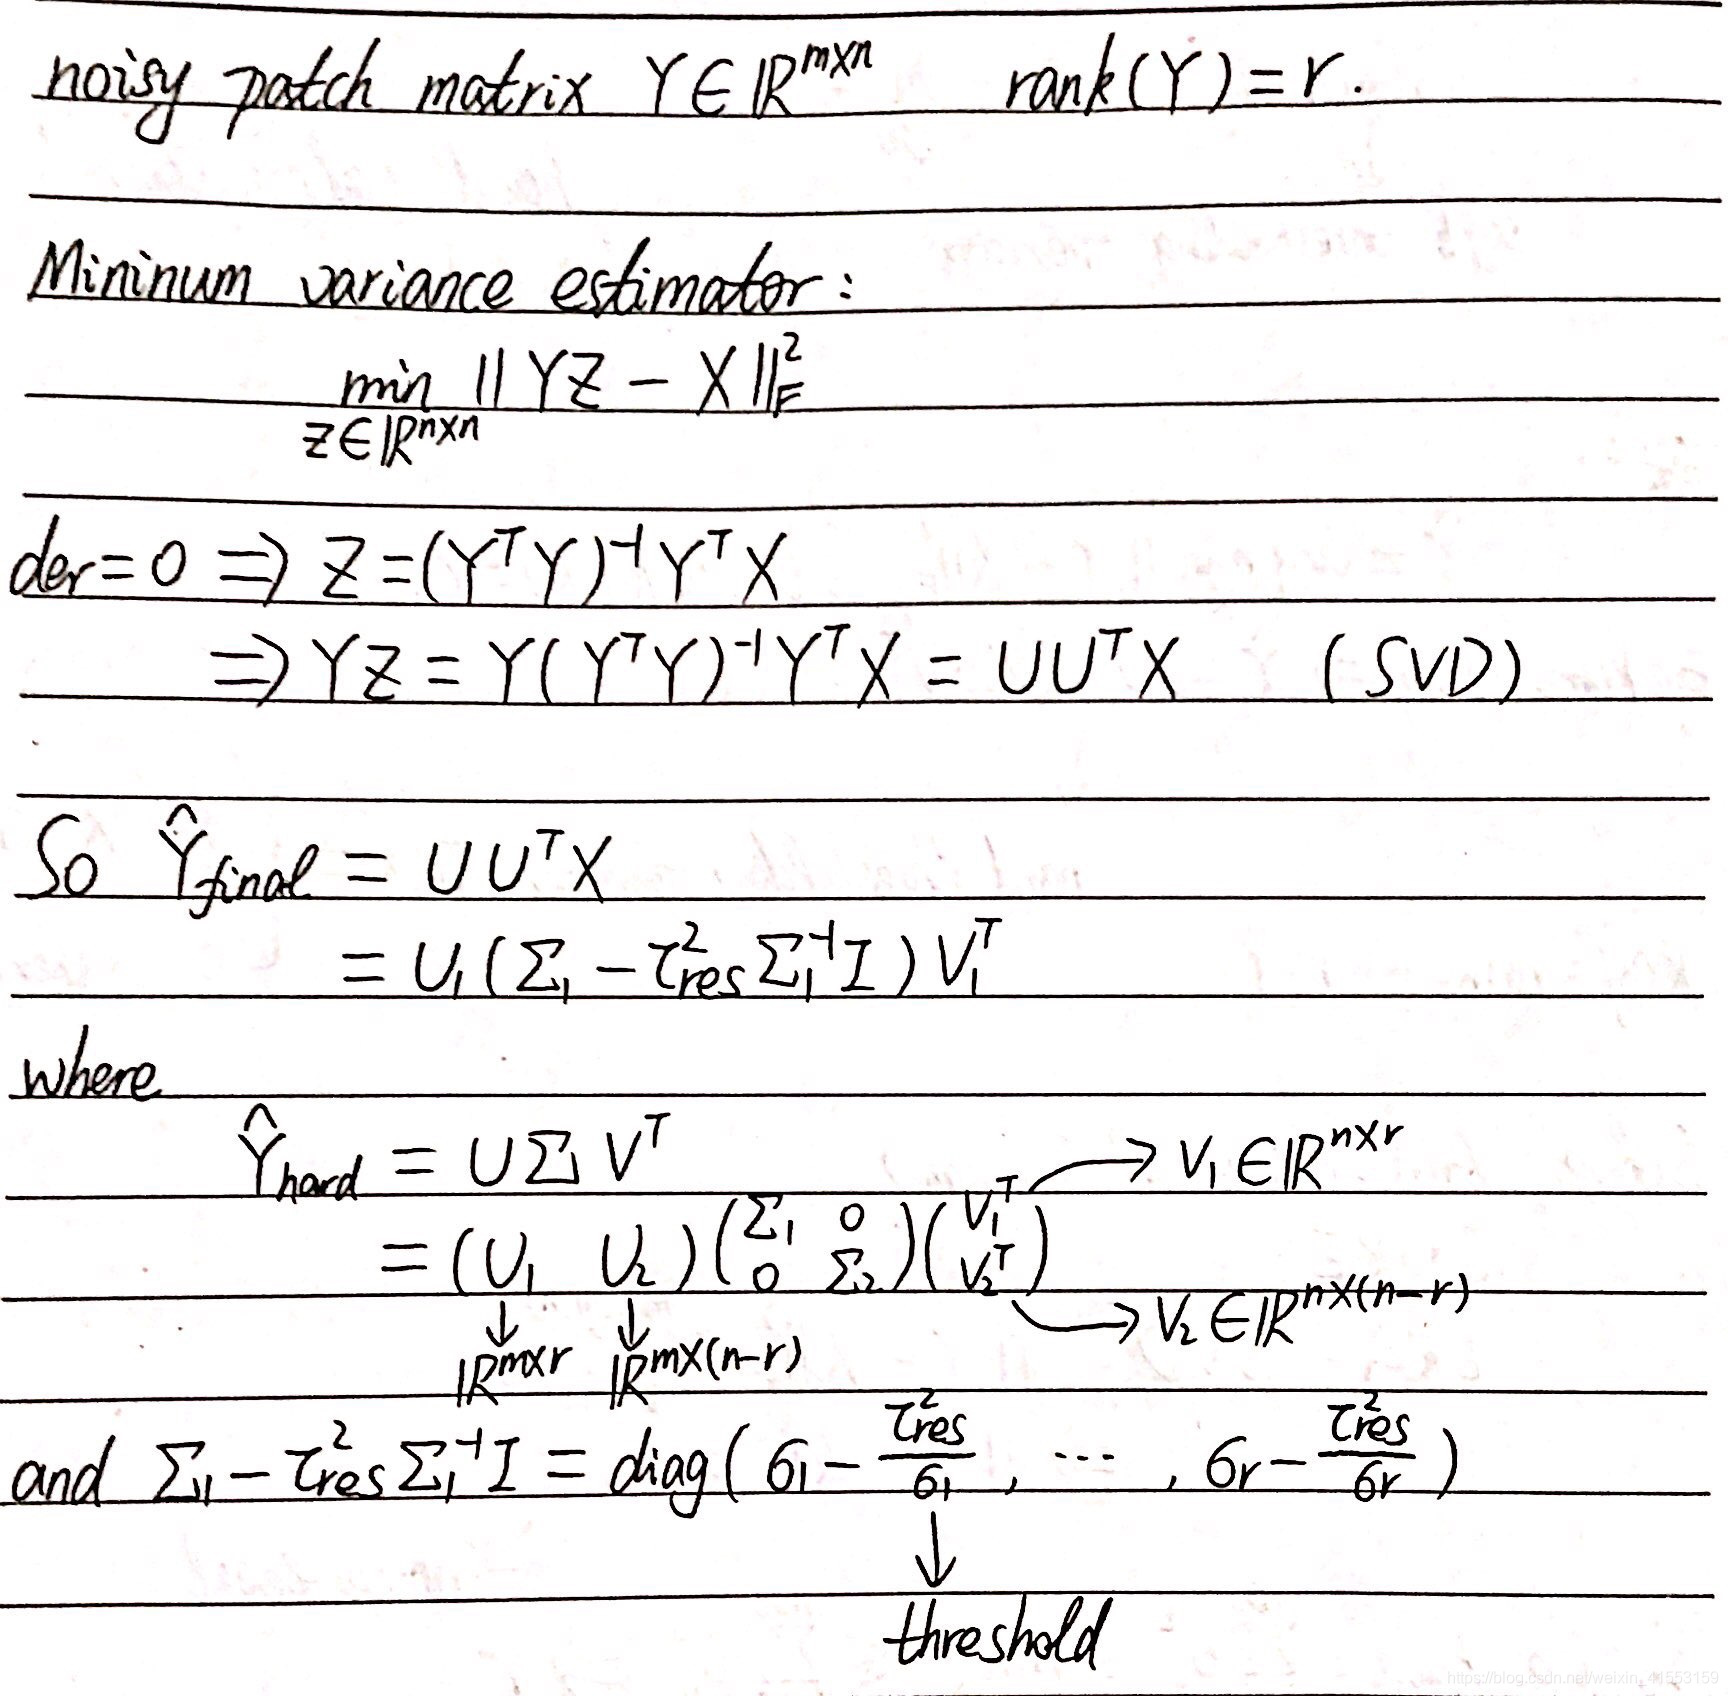 noisy patch matrix Y ∈ ℝ^{m×n} rank(Y) = r.
Mininum variance estimator:
min ‖YZ − X‖_F^2
Z∈ℝ^{n×n}
der = 0 ⇒ Z = (Y^T Y)^{-1} Y^T X
⇒ YZ = Y(Y^T Y)^{-1} Y^T X = UU^T X (SVD)
So Ŷ_final = UU^T X
= U_1(Σ_1 − τ_res^2 Σ_1^{-1} I) V_1^T
where
Ŷ_hard = UΣV^T → V_1 ∈ ℝ^{n×r}
= (U_1 U_2)(Σ_1 0 0 Σ_2)(V_1^T V_2^T)
↓ ↓ → V_2 ∈ ℝ^{n×(n−r)}
ℝ^{m×r} ℝ^{m×(n−r)}
and Σ_1 − τ_res^2 Σ_1^{-1} I = diag(σ_1 − τ_res^2/σ_1, ⋯, σ_r − τ_res^2/σ_r)
↓
threshold
https://blog.csdn.net/weixin_41553159